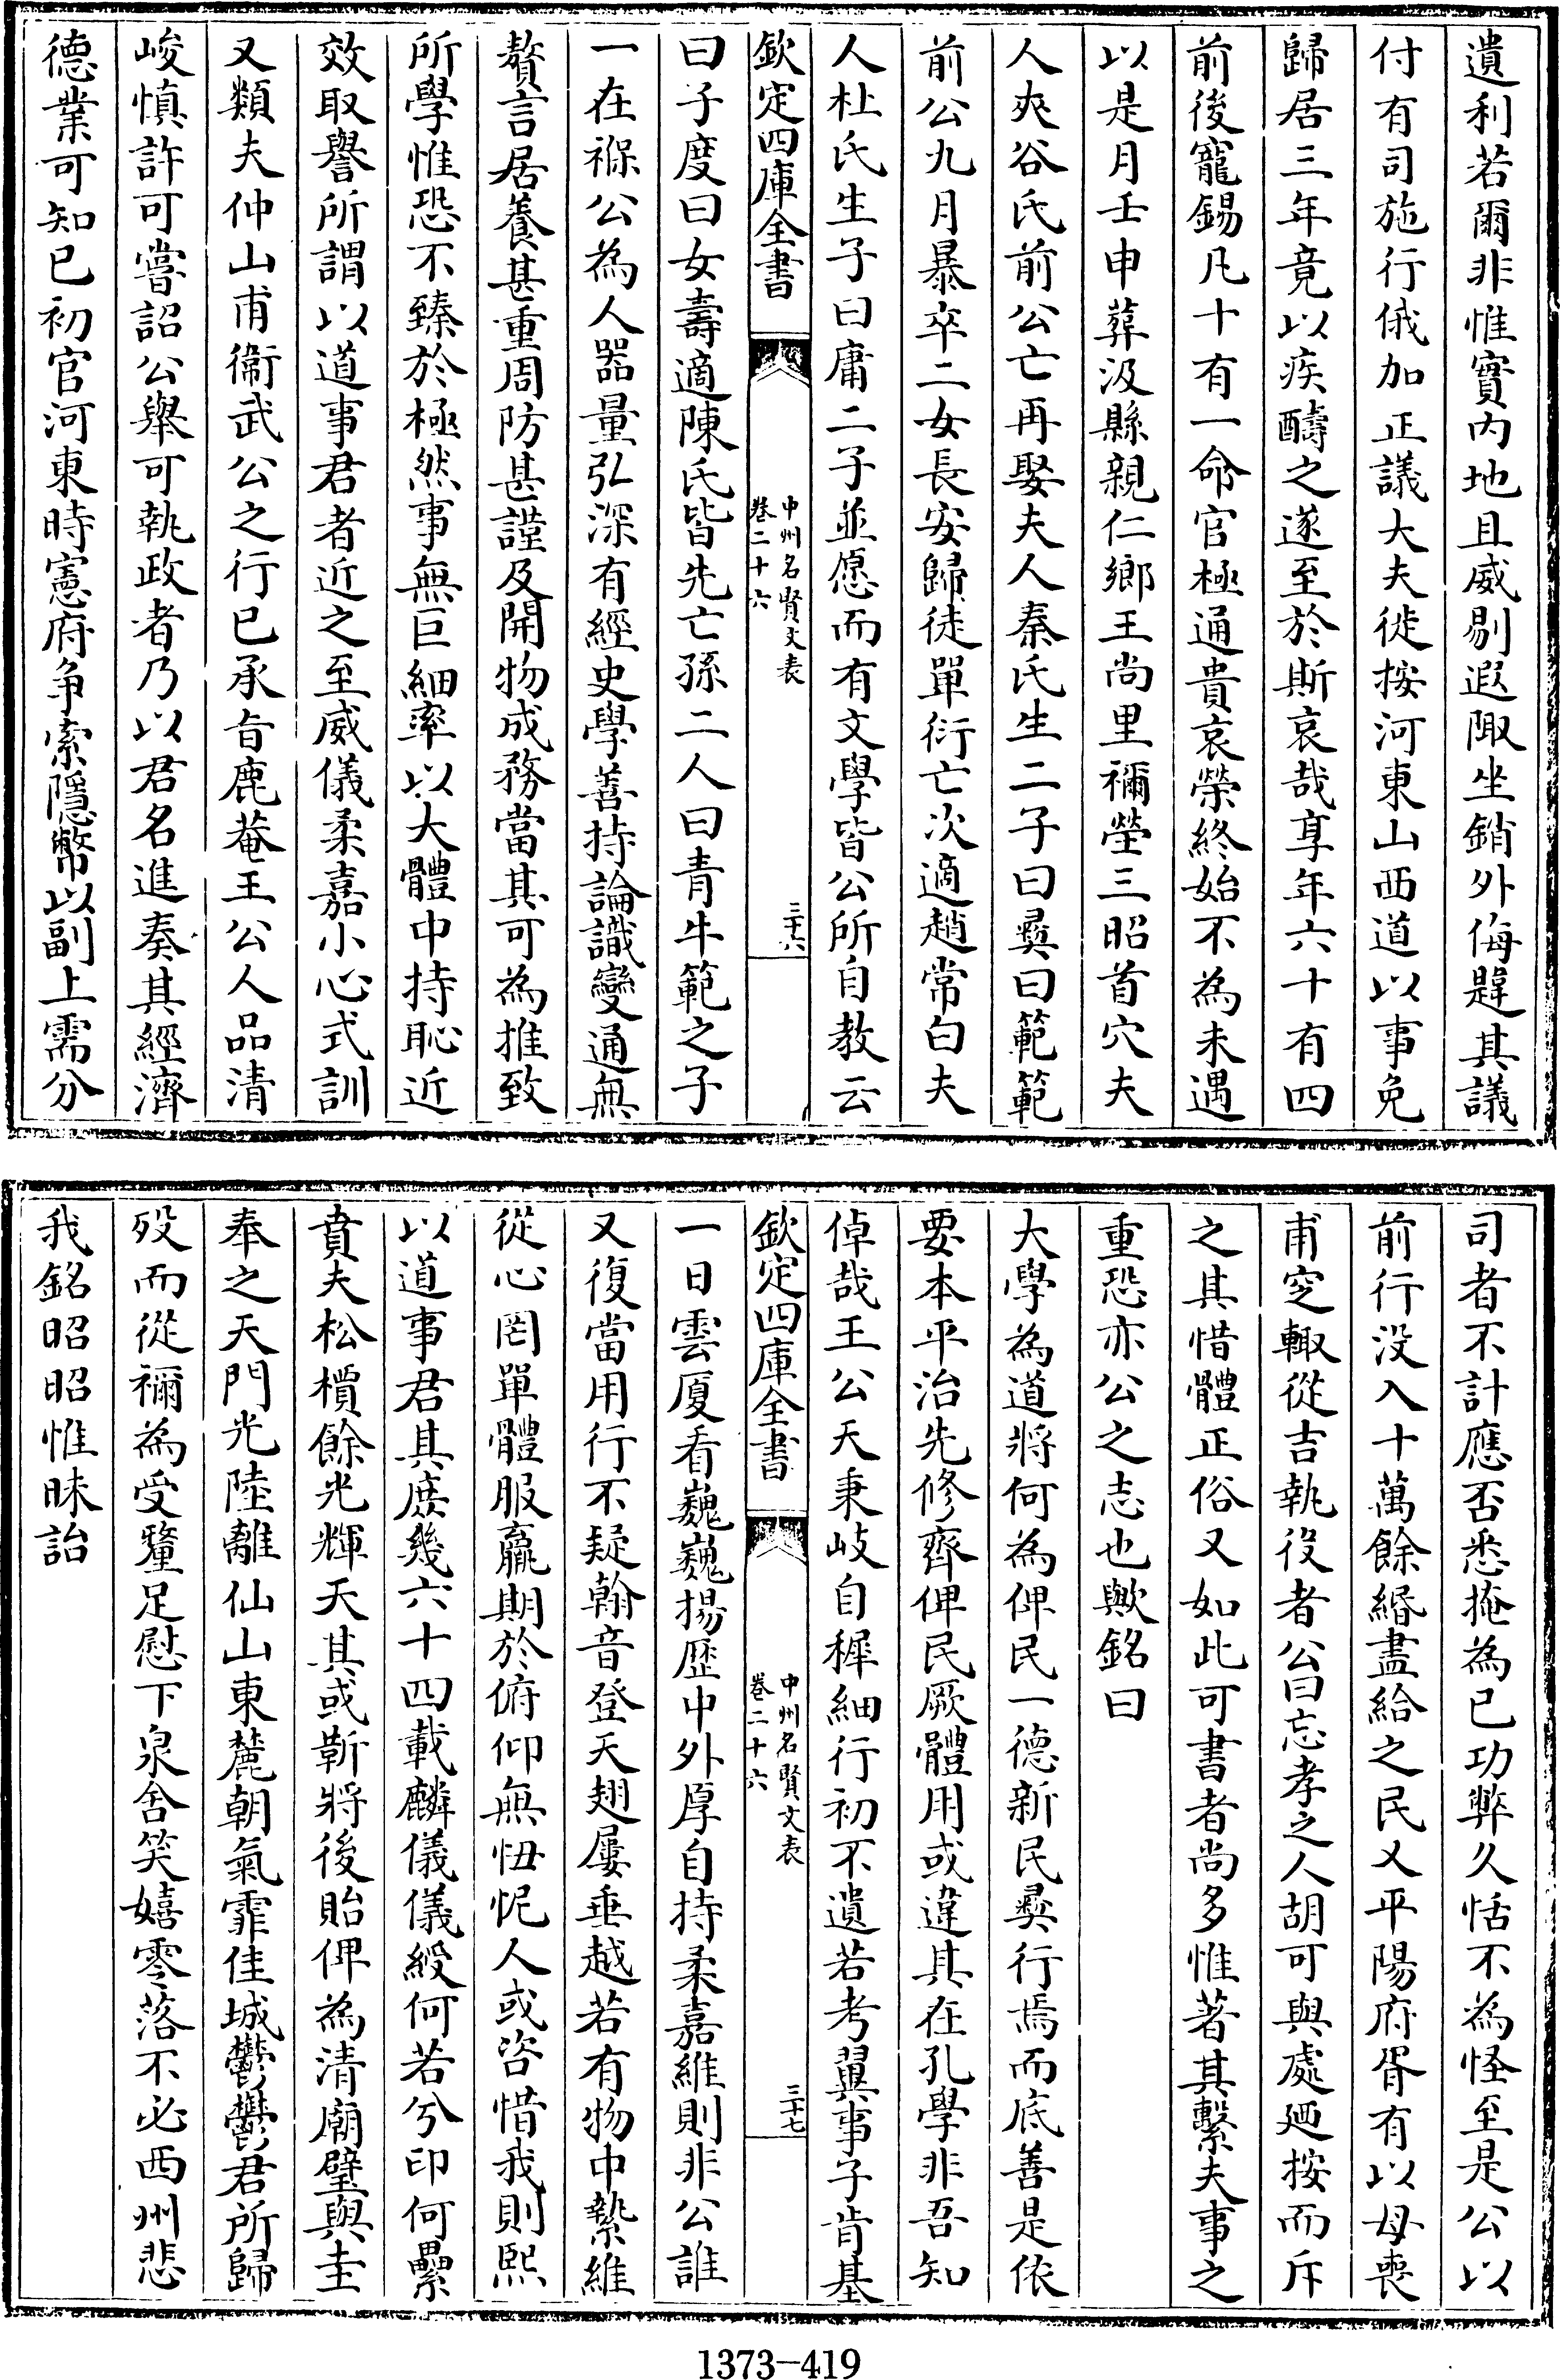 遺利若爾非惟實内地且威剔遐陬坐銷外侮韙其議
付有司施行俄加正議大夫徙按河東山西道以事免
歸居三年竟以疾醻之遂至於斯哀哉享年六十有四
前後寵錫凡十有一命官極通貴哀榮終始不為未遇
以是月壬申葬汲縣親仁鄉王尚里禰塋三昭首穴夫
人夾谷氏前公亡再娶夫人秦氏生二子曰彛曰範範
前公九月暴卒二女長安歸徒單衍亡次適趙常白夫
人杜氏生子曰庸二子並愿而有文學皆公所自教云
欽定四庫全書
中州名賢文表
卷二十六
三十六
曰子度曰女壽適陳氏皆先亡孫二人曰青牛範之子
一在褓公為人器量弘深有經史學善持論識變通無
贅言居養甚重周防甚謹及開物成務當其可為推致
所學惟恐不臻於極然事無巨細率以大體中持恥近
效取譽所謂以道事君者近之至威儀柔嘉小心式訓
又類夫仲山甫衞武公之行已承旨鹿菴王公人品清
峻慎許可嘗詔公舉可執政者乃以君名進奏其經濟
德業可知已初官河東時憲府争索隱幣以副上需分
司者不計應否悉掩為已功弊久恬不為怪至是公以
前行没入十萬餘緡盡給之民乂平陽府胥有以母喪
甫窆輙從吉執役者公曰忘孝之人胡可與處廼按而斥
之其惜體正俗又如此可書者尚多惟著其繫夫事之
重恐亦公之志也歟銘曰
大學為道將何為俾民一德新民彛行焉而底善是依
要本平治先修齊俾民厥體用或違其在孔學非吾知
倬哉王公天秉歧自穉細行初不遺若考翼事子肯基
欽定四庫全書
中州名賢文表
卷二十六
三十七
一日雲厦看巍巍揚歷中外厚自持柔嘉維則非公誰
又復當用行不疑翰音登天翅屢垂越若有物中縶維
從心罔單體服羸期於俯仰無忸怩人或咨惜我則熙
以道事君其庶幾六十四載麟儀儀綬何若兮印何纍
賁夫松檟餘光輝天其或靳將後貽俾為清廟璧與圭
奉之天門光陸離仙山東麓朝氣霏佳城鬱鬱君所歸
歿而從禰為受釐足慰下泉含笑嬉零落不必西州悲
我銘昭昭惟昧詒
1373-419